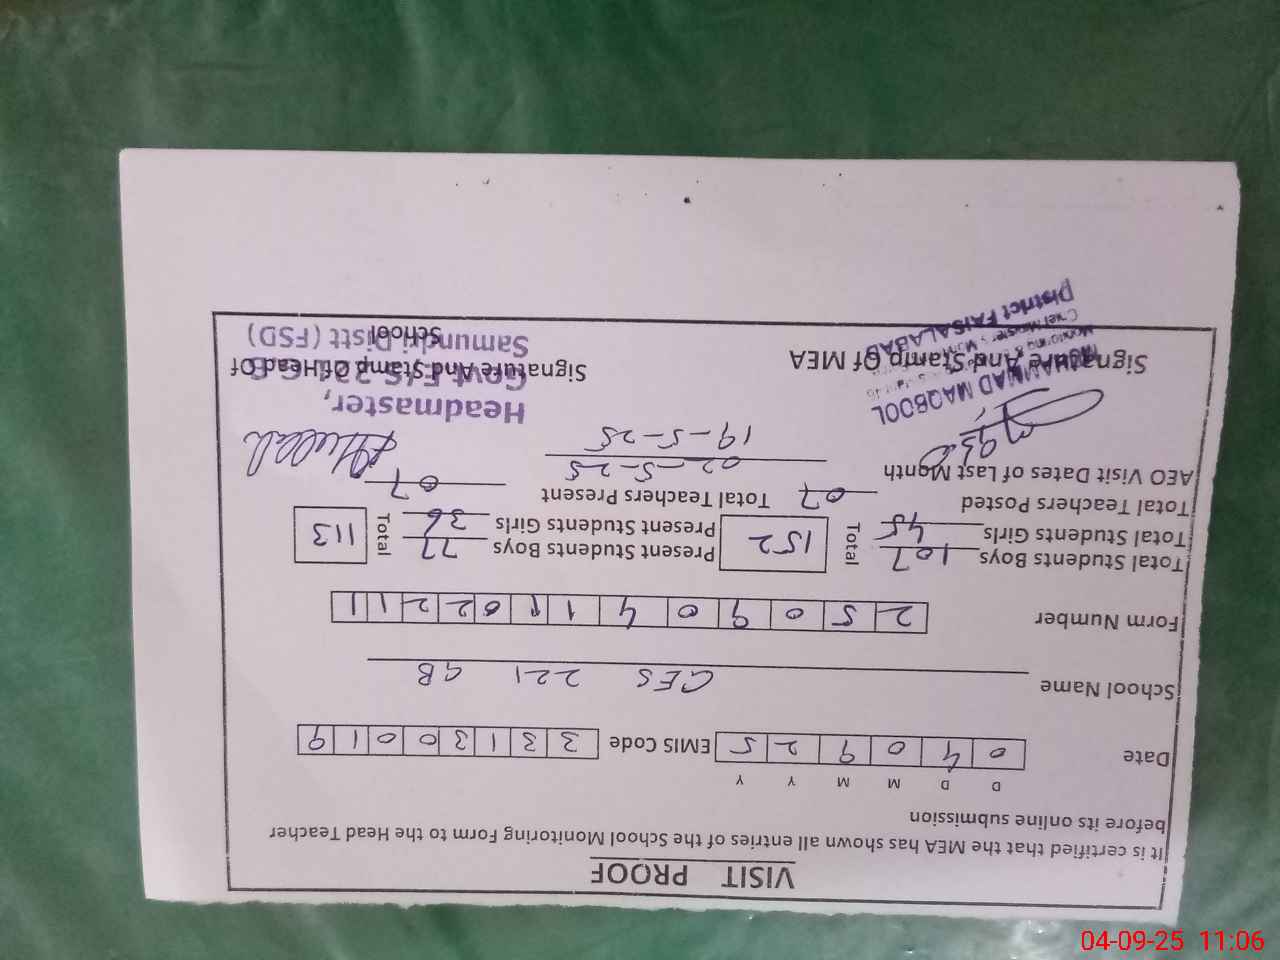 VISIT PROOF
It is certified that the MEA has shown all entries of the School Monitoring Form to the Head Teacher
before its online submission
D D M M Y Y
Date 0 4 0 9 2 5 EMIS Code 3 3 1 3 0 0 1 9
School Name GES 221 GB
Form Number 2 5 0 9 0 4 1 1 0 2 2 1 1
Total Students Boys 107 Total 152 Present Students Boys 77 Total 113
Total Students Girls 45 Present Students Girls 36
Total Teachers Posted 07 Total Teachers Present 07
AEO Visit Dates of Last Month 02-5-25
19-5-25
Headmaster,
Signature And Stamp Of MEA
Signature And Stamp Of Head Of
School
Samundri Distt (FSD)
MUHAMMAD MAQBOOL
Monitoring &
Chief Minister's
District FAISALABAD
04-09-25 11:06